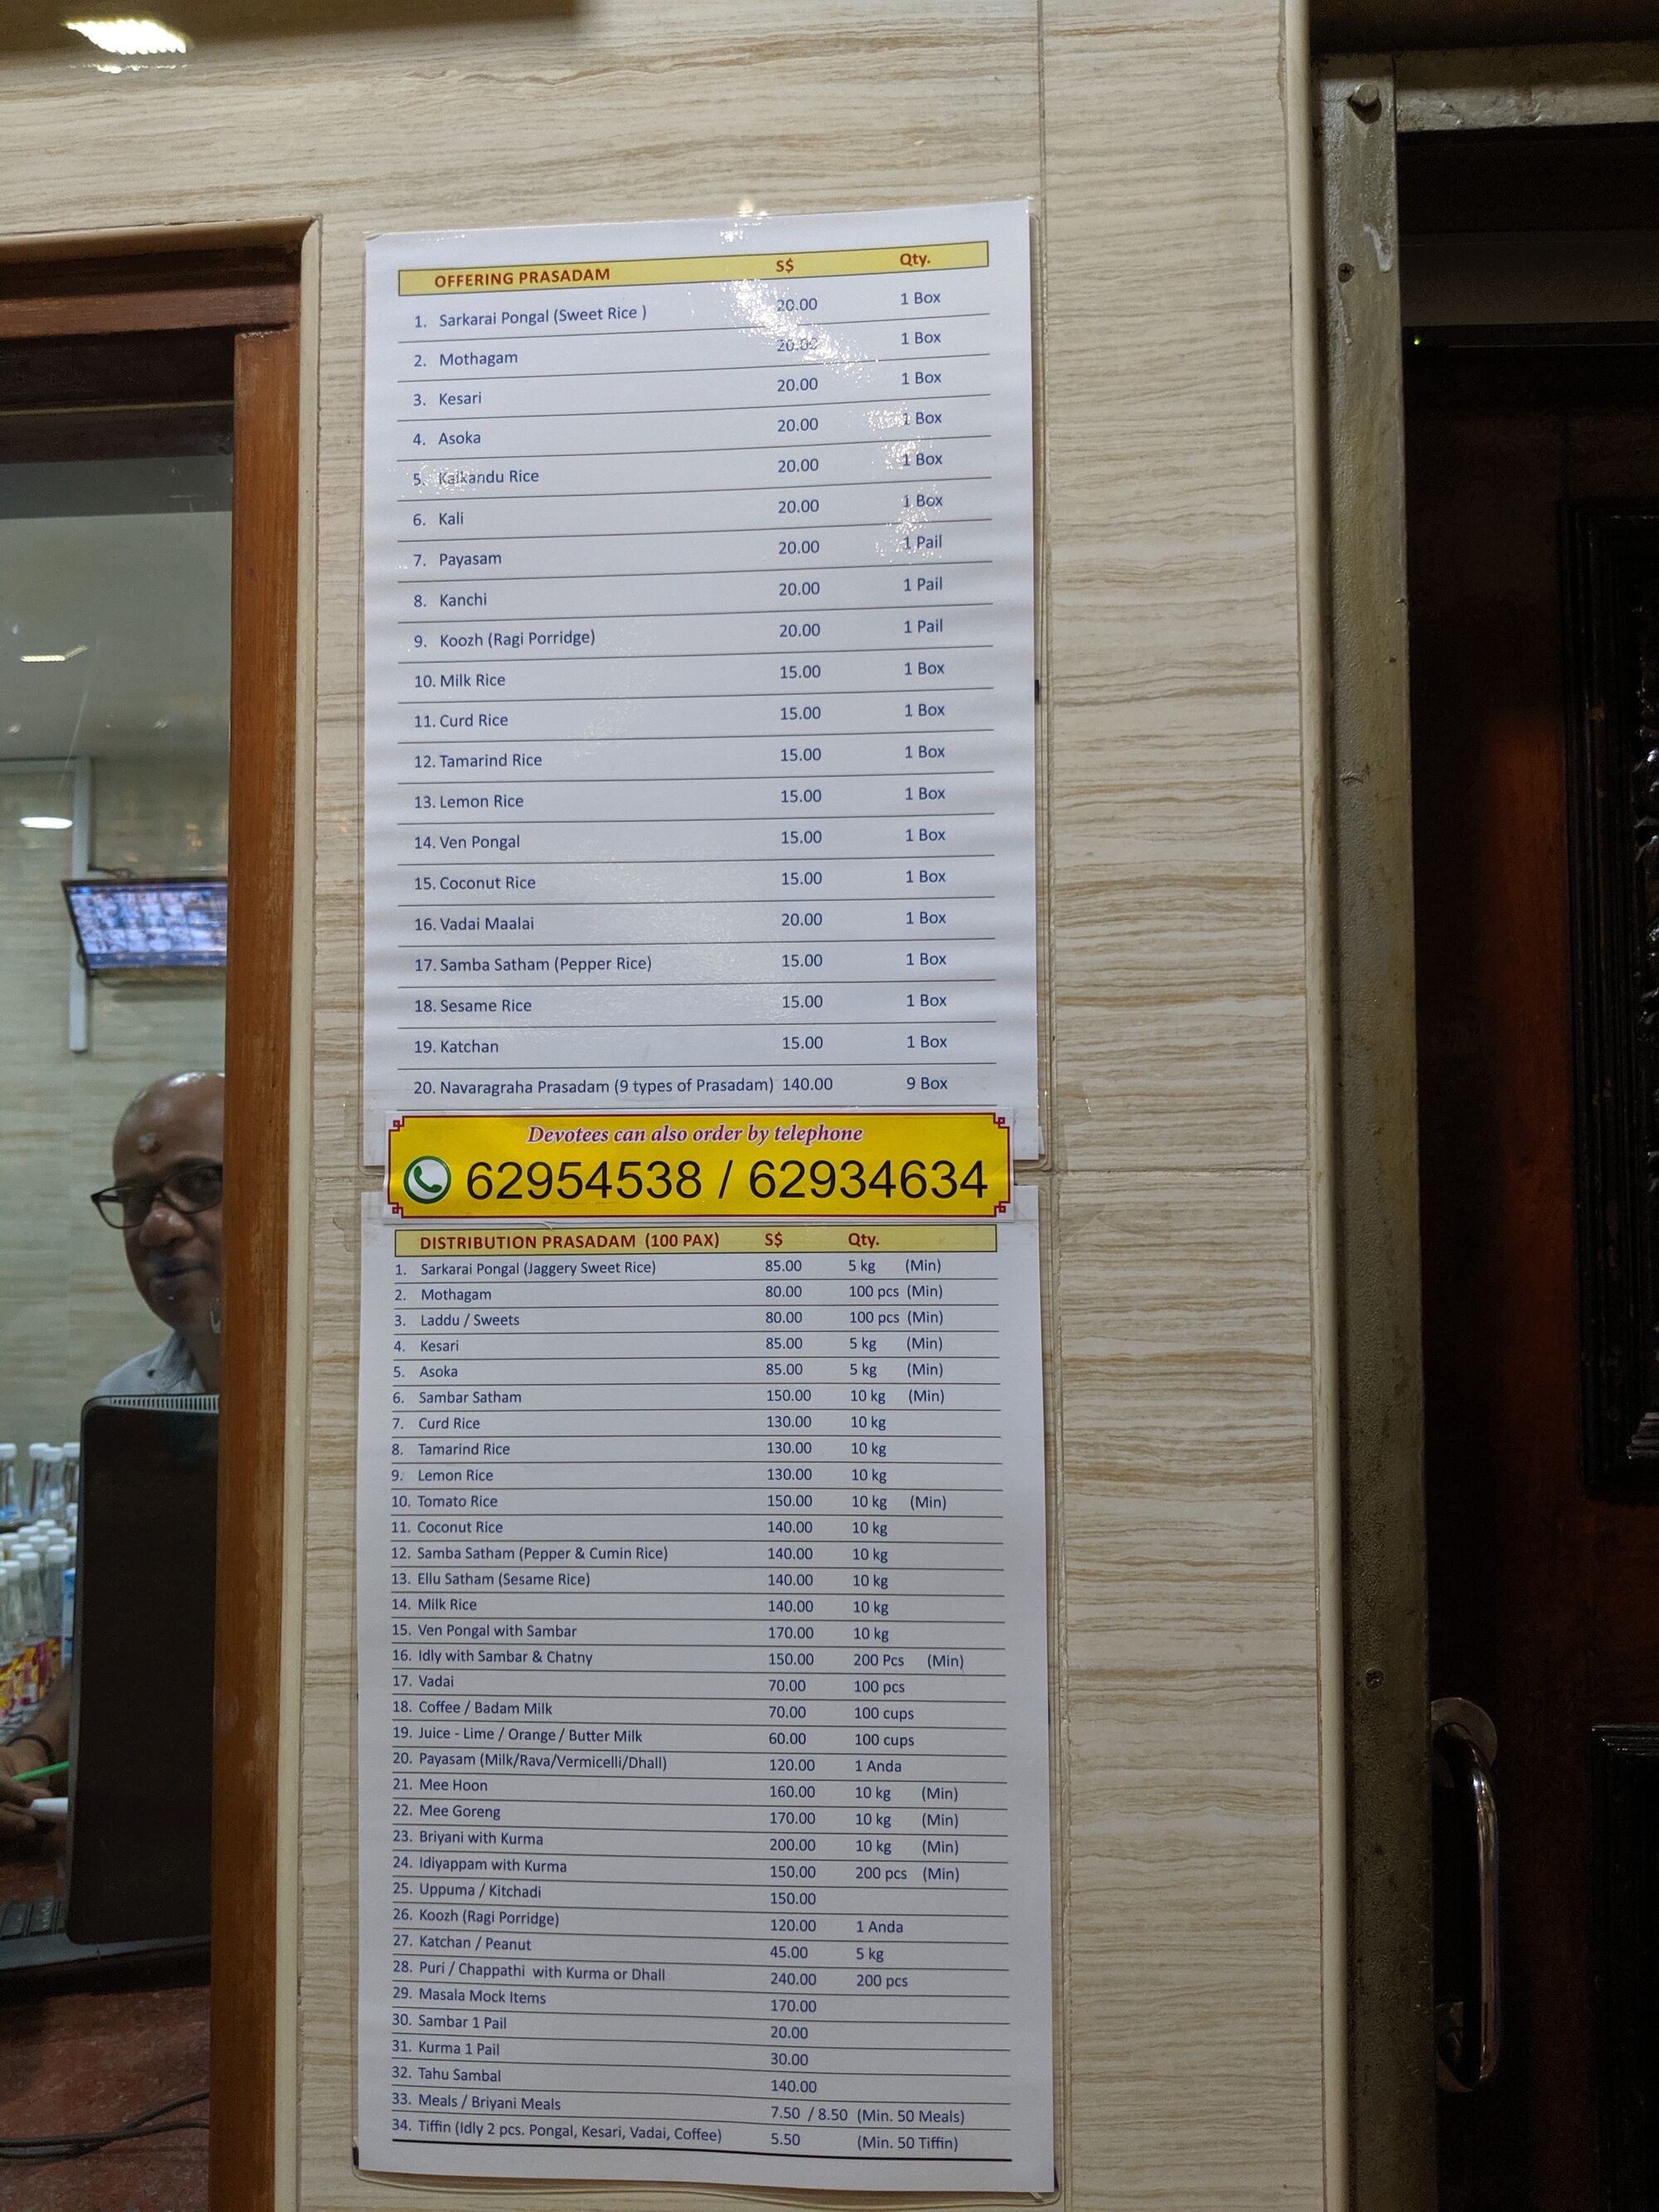 OFFERING PRASADAM S$ Qty.
1. Sarkarai Pongal (Sweet Rice ) 20.00 1 Box
2. Mothagam 20.00 1 Box
3. Kesari 20.00 1 Box
4. Asoka 20.00 1 Box
5. Kalkandu Rice 20.00 1 Box
6. Kali 20.00 1 Box
7. Payasam 20.00 1 Pail
8. Kanchi 20.00 1 Pail
9. Koozh (Ragi Porridge) 20.00 1 Pail
10. Milk Rice 15.00 1 Box
11. Curd Rice 15.00 1 Box
12. Tamarind Rice 15.00 1 Box
13. Lemon Rice 15.00 1 Box
14. Ven Pongal 15.00 1 Box
15. Coconut Rice 15.00 1 Box
16. Vadai Maalai 20.00 1 Box
17. Samba Satham (Pepper Rice) 15.00 1 Box
18. Sesame Rice 15.00 1 Box
19. Katchan 15.00 1 Box
20. Navaragraha Prasadam (9 types of Prasadam) 140.00 9 Box
Devotees can also order by telephone
62954538 / 62934634
DISTRIBUTION PRASADAM (100 PAX) S$ Qty.
1. Sarkarai Pongal (Jaggery Sweet Rice) 85.00 5 kg (Min)
2. Mothagam 80.00 100 pcs (Min)
3. Laddu / Sweets 80.00 100 pcs (Min)
4. Kesari 85.00 5 kg (Min)
5. Asoka 85.00 5 kg (Min)
6. Sambar Satham 150.00 10 kg (Min)
7. Curd Rice 130.00 10 kg
8. Tamarind Rice 130.00 10 kg
9. Lemon Rice 130.00 10 kg
10. Tomato Rice 150.00 10 kg (Min)
11. Coconut Rice 140.00 10 kg
12. Samba Satham (Pepper & Cumin Rice) 140.00 10 kg
13. Ellu Satham (Sesame Rice) 140.00 10 kg
14. Milk Rice 140.00 10 kg
15. Ven Pongal with Sambar 170.00 10 kg
16. Idly with Sambar & Chatny 150.00 200 Pcs (Min)
17. Vadai 70.00 100 pcs
18. Coffee / Badam Milk 70.00 100 cups
19. Juice - Lime / Orange / Butter Milk 60.00 100 cups
20. Payasam (Milk/Rava/Vermicelli/Dhall) 120.00 1 Anda
21. Mee Hoon 160.00 10 kg (Min)
22. Mee Goreng 170.00 10 kg (Min)
23. Briyani with Kurma 200.00 10 kg (Min)
24. Idiyappam with Kurma 150.00 200 pcs (Min)
25. Uppuma / Kitchadi 150.00
26. Koozh (Ragi Porridge) 120.00 1 Anda
27. Katchan / Peanut 45.00 5 kg
28. Puri / Chappathi with Kurma or Dhall 240.00 200 pcs
29. Masala Mock Items 170.00
30. Sambar 1 Pail 20.00
31. Kurma 1 Pail 30.00
32. Tahu Sambal 140.00
33. Meals / Briyani Meals 7.50 / 8.50 (Min. 50 Meals)
34. Tiffin (Idly 2 pcs. Pongal, Kesari, Vadai, Coffee) 5.50 (Min. 50 Tiffin)